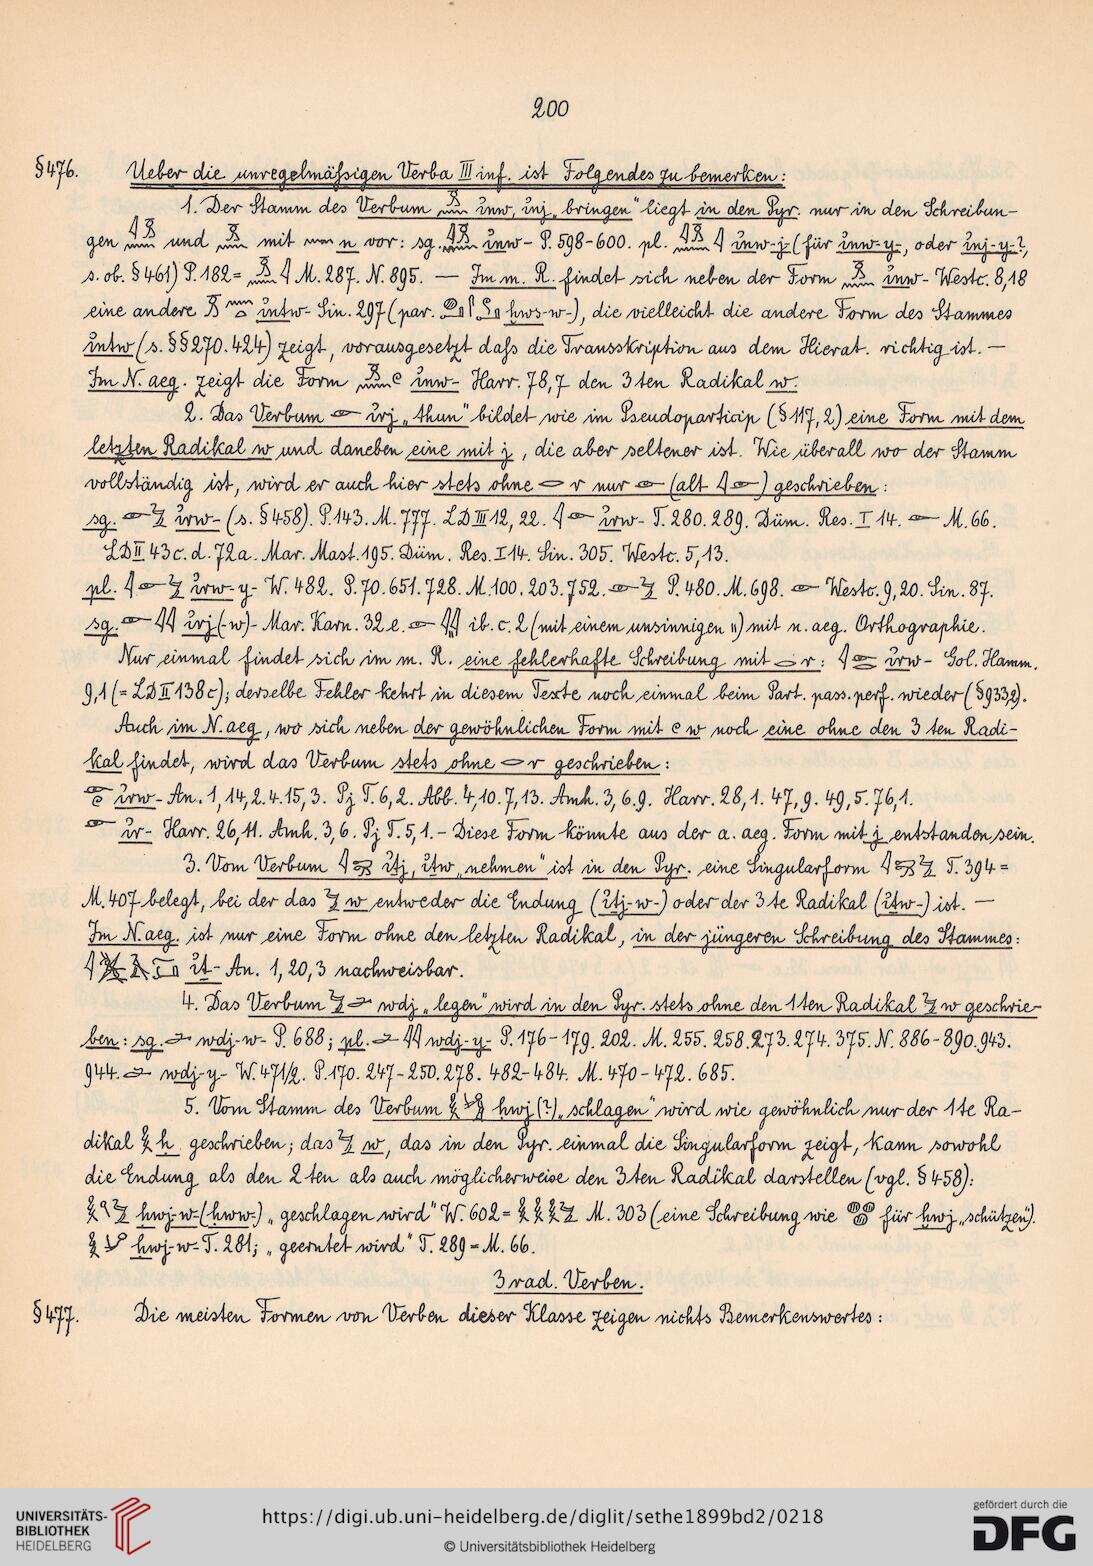 200
§476. Ueber die unregelmäßigen Verba III inf. ist Folgendes zu bemerken:
1. Der Stamm des Verbum 𓏎𓈖 ỉnw, ỉnj „bringen“ liegt in den Pyr. nur in den Schreibun-
gen 𓇋𓏎𓈖 und 𓏎𓈖 mit 𓈖 n vor: sg. 𓇋𓏎𓈖 ỉnw- P. 598-600. pl. 𓇋𓏎𓈖𓇋 ỉnw-j (für ỉnw-y-, oder ỉnj-y-?,
s. ob. §461) P. 182 = 𓏎𓈖𓇋 M. 287. N. 895. — Im m. R. findet sich neben der Form 𓏎𓈖 ỉnw- Westc. 8,18
eine andere ỉntw- Sin. 297 (par. ḫws-w-), die vielleicht die andere Form des Stammes
ỉntw (s. §§270.424) zeigt, vorausgesetzt daß die Transskription aus dem Hierat. richtig ist. —
Im N. aeg. zeigt die Form 𓏎𓈖𓏲 ỉnw- Harr. 78,7 den 3ten Radikal w.
2. Das Verbum 𓁹 ỉrj „thun“ bildet wie im Pseudoparticip (§117,2) eine Form mit dem
letzten Radikal w und daneben eine mit j, die aber seltener ist. Wie überall wo der Stamm
vollständig ist, wird er auch hier stets ohne 𓂋 r nur 𓁹 (alt 𓇋𓁹) geschrieben:
sg. 𓁹𓅱 ỉrw- (s. §458). P. 143. M. 777. LD III 12, 22. 𓇋𓁹 ỉrw- T. 280. 289. Düm. Res. I 14. 𓁹 M. 66.
LD II 43c. d. 72a. Mar. Mast. 195. Düm. Res. I 14. Sin. 305. Westc. 5,13.
pl. 𓇋𓁹𓅱 ỉrw-y- W. 482. P. 70. 651. 728. M. 100. 203. 752. 𓁹𓅱 P. 480. M. 698. 𓁹 Westc. 9,20. Sin. 87.
sg. 𓁹𓇋𓇋 ỉrj(-w)- Mar. Karn. 32 e. 𓁹𓇋𓇋𓏭 ib. c. 2 (mit einem unsinnigen 𓏭) mit n. aeg. Orthographie.
Nur einmal findet sich im m. R. eine fehlerhafte Schreibung mit 𓂋 r: 𓇋𓁹𓂋 ỉrw- Gol. Hamm.
9,1 (= LD II 138c); derselbe Fehler kehrt in diesem Texte noch einmal beim Part. pass. perf. wieder (§933,2).
Auch im N. aeg., wo sich neben der gewöhnlichen Form mit 𓏲 w noch eine ohne den 3ten Radi-
kal findet, wird das Verbum stets ohne 𓂋 r geschrieben:
𓁹𓏲 ỉrw- An. 1, 14, 2. 4. 15, 3. Pj T. 6, 2. Abb. 4, 10. 7, 13. Amh. 3, 6. 9. Harr. 28, 1. 47, 9. 49, 5. 76, 1.
𓁹 ỉr- Harr. 26, 11. Amh. 3, 6. Pj T. 5, 1. – Diese Form könnte aus der a. aeg. Form mit j entstanden sein.
3. Vom Verbum ỉṯj, ỉṯw „nehmen“ ist in den Pyr. eine Singularform T. 394 =
M. 407 belegt, bei der das 𓅱 w entweder die Endung (ỉṯj-w-) oder der 3te Radikal (ỉṯw-) ist. —
Im N. aeg. ist nur eine Form ohne den letzten Radikal, in der jüngeren Schreibung des Stammes:
ỉṯ- An. 1, 20, 3 nachweisbar.
4. Das Verbum wdj „legen“ wird in den Pyr. stets ohne den 1ten Radikal 𓅱 w geschrie-
ben: sg. wdj-w- P. 688; pl. 𓇋𓇋 wdj-y- P. 176-179. 202. M. 255. 258. 273. 274. 375. N. 886-890. 943.
944. wdj-y- W. 471/2. P. 170. 247-250. 278. 482-484. M. 470-472. 685.
5. Vom Stamm des Verbum ḥwj (?) „schlagen“ wird wie gewöhnlich nur der 1te Ra-
dikal 𓎛 ḥ geschrieben; das 𓅱 w, das in den Pyr. einmal die Singularform zeigt, kann sowohl
die Endung als den 2ten als auch möglicherweise den 3ten Radikal darstellen (vgl. §458):
ḥwj-w- (ḥww-) „geschlagen wird“ W. 602 = 𓎛𓎛𓎛𓅱 M. 303 (eine Schreibung wie für ḫwj „schützen“).
ḥwj-w- T. 281; „geerntet wird“ T. 289 = M. 66.
3rad. Verben.
§477. Die meisten Formen von Verben dieser Klasse zeigen nichts Bemerkenswertes:
UNIVERSITÄTS-
BIBLIOTHEK
HEIDELBERG
https://digi.ub.uni-heidelberg.de/diglit/sethe1899bd2/0218
© Universitätsbibliothek Heidelberg
gefördert durch die
DFG